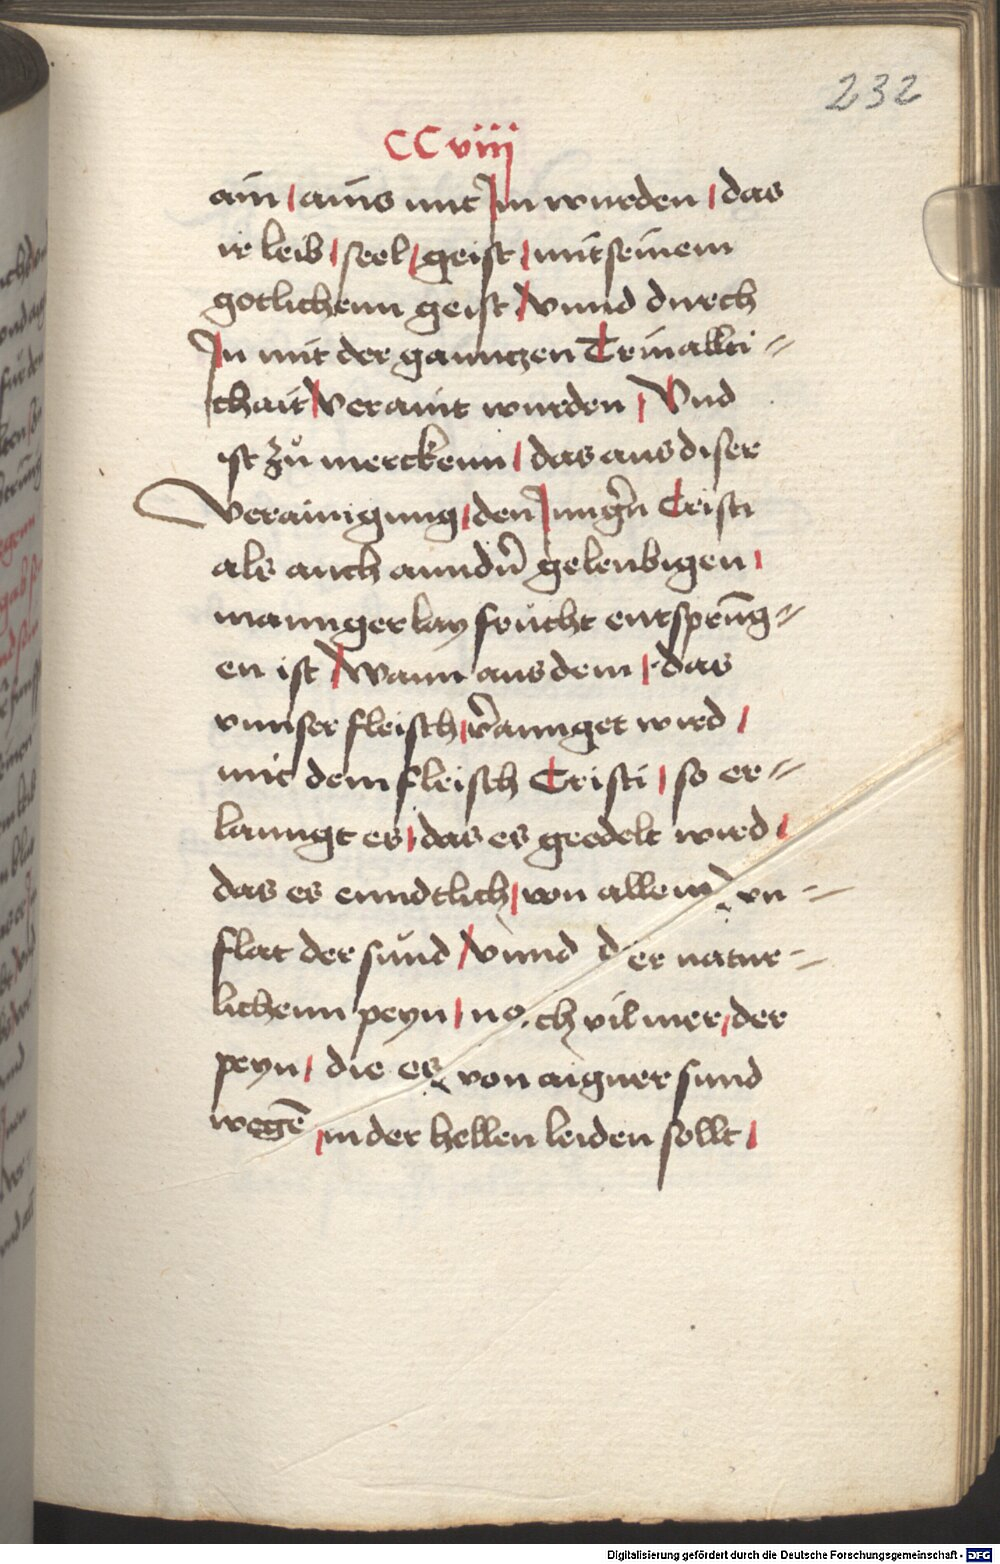 232
CCviii
ain / ains mit Im wurden / das
ir leib / seel / geist / mit seinem
gotlichenn geist / vnnd durch
In mit der ganntzen Triualti=
chait / veraint wurden / Vnd
ist zů merckenn / das aus diser
verainigung / den Jungern̄ Cristi
als auch anndn̄ geleubigen /
manngerlay frücht entsprūg=
en ist / Wann aus dem / das
vnnser fleisch / v̄ainiget wird /
mit dem fleisch Cristi / so er=
lanngt es / das es geedelt wird /
das es enndtlich / von allem vn=
flat der sünd / vnnd der natur=
lichenn peyn / noch vil mer / der
peyn / die es von aigner sund
wegē / in der hellen leiden sollt /
Digitalisierung gefördert durch die Deutsche Forschungsgemeinschaft - DFG